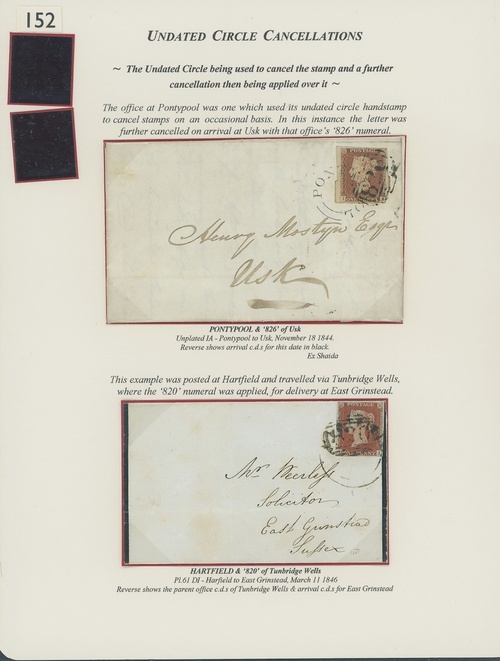 152
UNDATED CIRCLE CANCELLATIONS
~ The Undated Circle being used to cancel the stamp and a further
cancellation then being applied over it ~
The office at Pontypool was one which used its undated circle handstamp
to cancel stamps on an occasional basis. In this instance the letter was
further cancelled on arrival at Usk with that office's '826' numeral.
POSTAGE
PON
Henry Mostyn Esqr
Usk
PONTYPOOL & '826' of Usk
Unplated IA - Pontypool to Usk, November 18 1844.
Reverse shows arrival c.d.s for this date in black.
Ex Shaida
This example was posted at Hartfield and travelled via Tunbridge Wells,
where the '820' numeral was applied, for delivery at East Grinstead.
Mr. Peerless
Solicitor
East Grinstead
Sussex
HARTFIELD & '820' of Tunbridge Wells
Pl.61 DI - Harfield to East Grinstead, March 11 1846
Reverse shows the parent office c.d.s of Tunbridge Wells & arrival c.d.s for East Grinstead